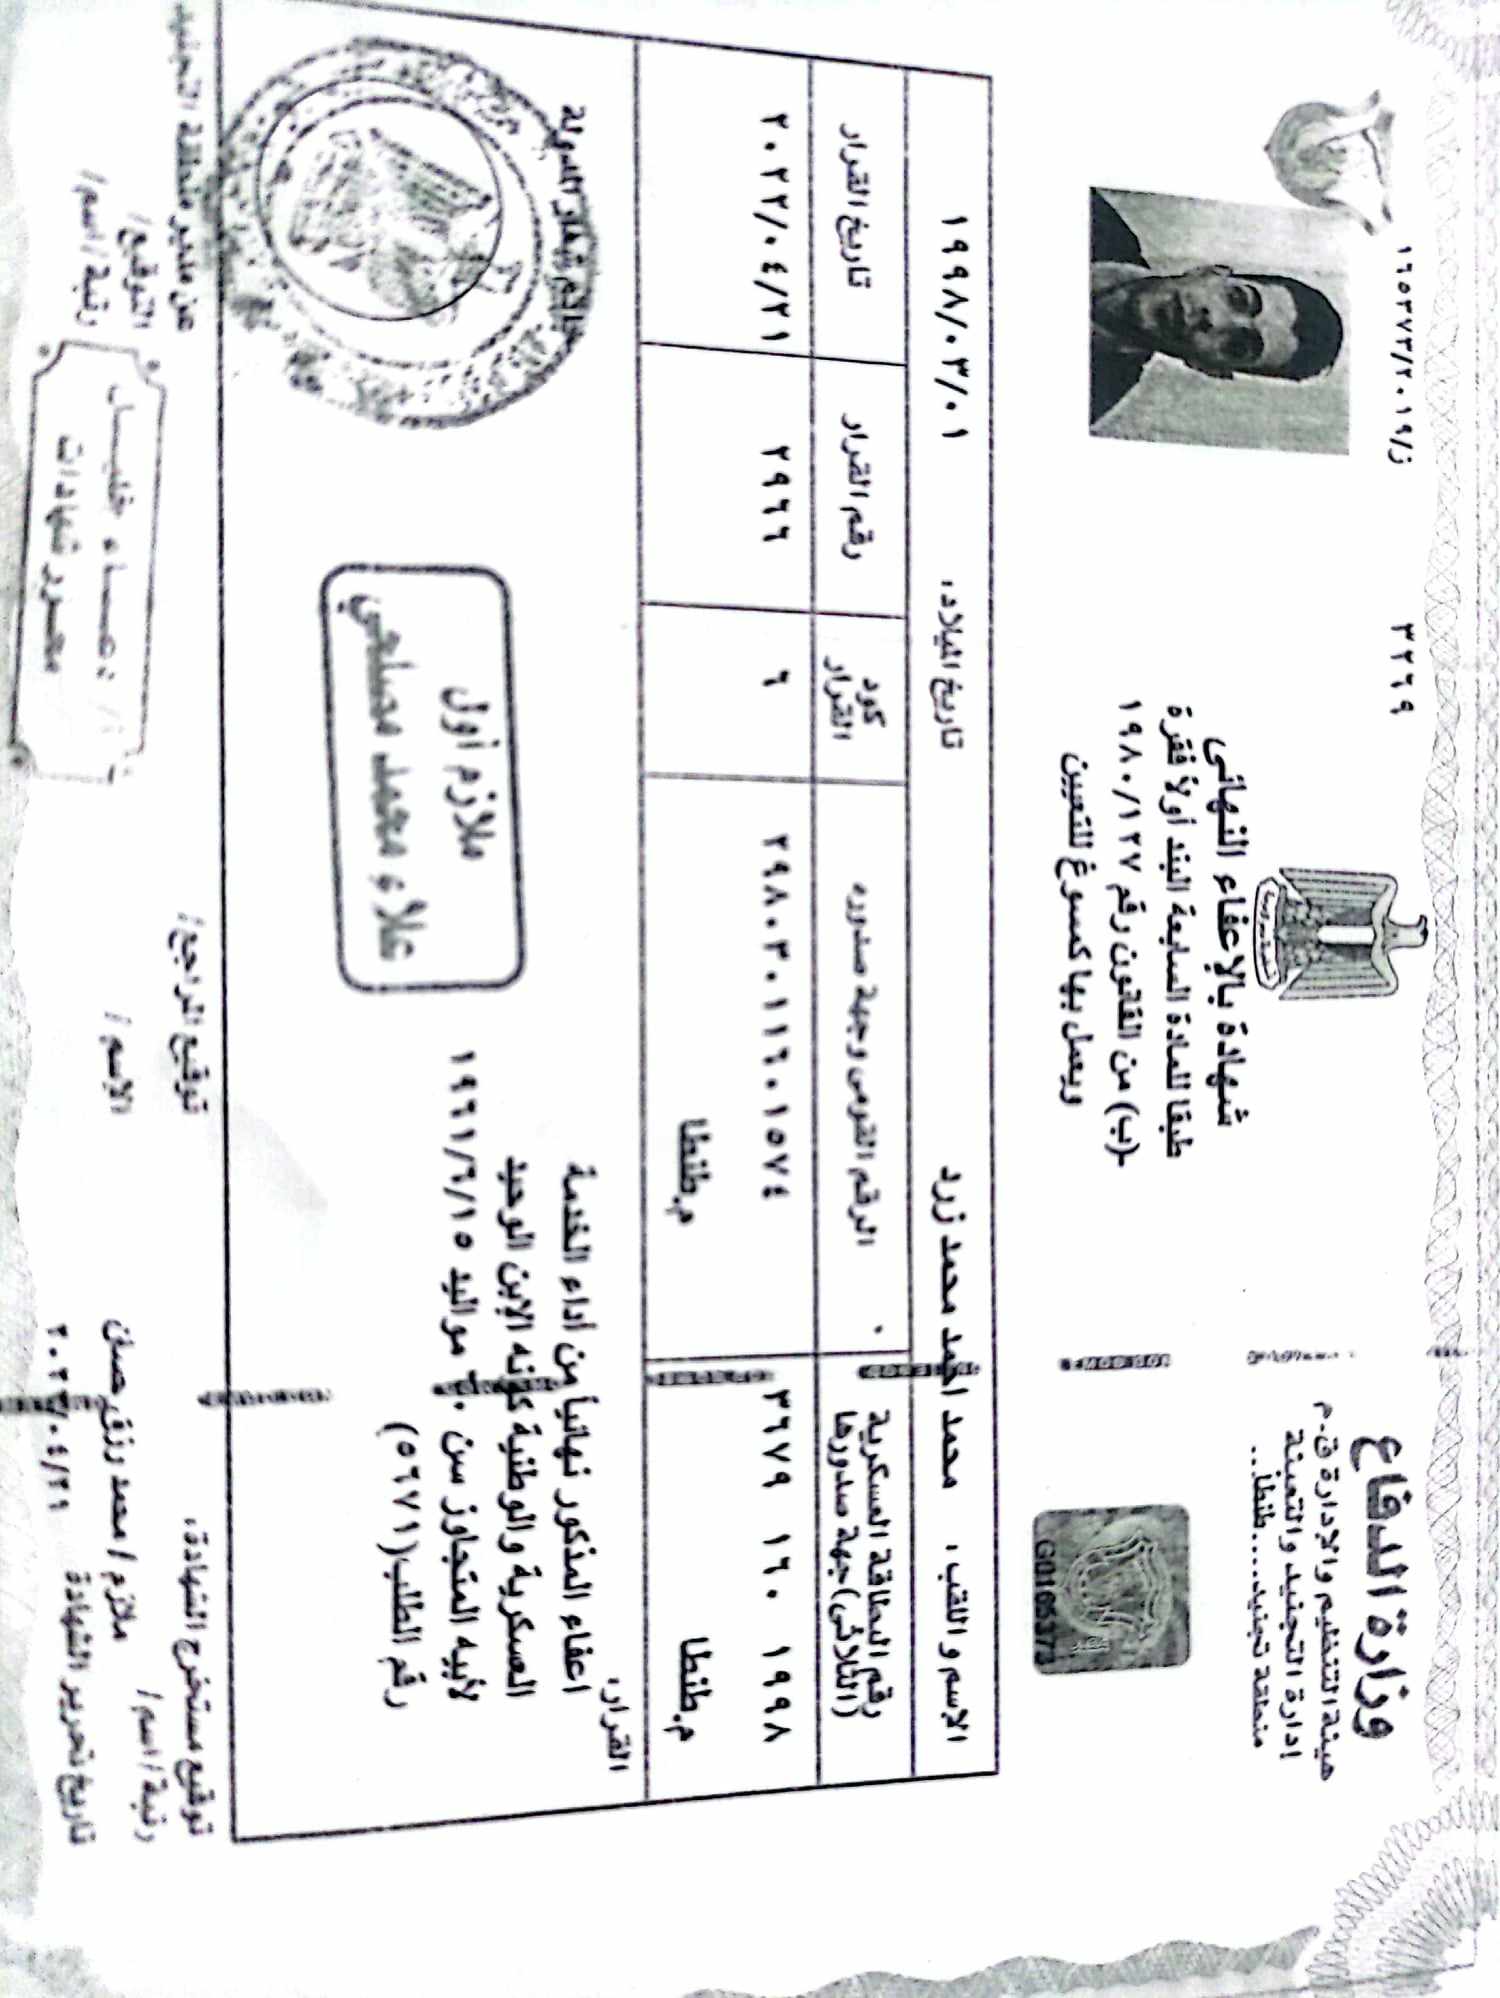 وزارة الدفاع
هيئة التنظيم والإدارة ق.م
إدارة التجنيد والتعبئة
منطقة تجنيد.....طنطا..
٣٢٦٩
١٦٥٣٧٣/٢٠١٩/ز
شهادة بالإعفاء النهائى
طبقا للمادة السابعة البند أولاً فقرة
(ب) من القانون رقم ١٩٨٠/١٢٧
ويعمل بها كمسوغ للتعيين
G0165373
الإسم و اللقب : محمد احمد محمد زرد
تاريخ الميلاد: ١٩٩٨/٠٣/٠١
رقم البطاقة العسكرية (الثلاثى) جهة صدورها
الرقم القومى وجهة صدوره
كود القرار
رقم القرار
تاريخ القرار
١٩٩٨ ١٦٠ ٣٦٧٩
م.طنطا
٢٩٨٠٣٠١١٦٠١٥٧٤
م.طنطا
٦
٢٩٦٦
٢٠٢٢/٠٤/٢١
القرار:
اعفاء المذكور نهائياً من أداء الخدمة
العسكرية والوطنية كونه الإبن الوحيد
لأبيه المتجاوز سن ٦٠ مواليد ١٩٦١/٦/١٥
رقم الطلب(٥٦٧١)
ملازم أول
علاء محمد مصلحي
خاتم شعار الدولة
توقيع مستخرج الشهادة:
رتبة / اسم / ملازم / محمد رزق
تاريخ تحرير الشهادة
توقيع المراجع /
الإسم /
عن مدير منطقة التجنيد
التوقيع /
رتبة / اسم /
دعاء خليل
محرر شهادات